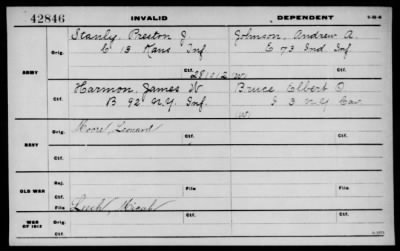 42846 INVALID DEPENDENT
Stanly, Preston J. Johnson, Andrew A.
Orig. E 13 Kans Inf E 73 Ind. Inf
ARMY
Ctf. 281012 W.
Harmon, James W Bruce Elbert O.
Ctf. B 92 N.Y. Inf. I 3 N.Y. Cav
W.
Orig. Moore, Leonard Orig.
NAVY
Ctf. Ctf.
Rej.
OLD WAR File File
Ctf.
Leech, Micah
WAR OF 1812 Orig. Ctf. Ctf.